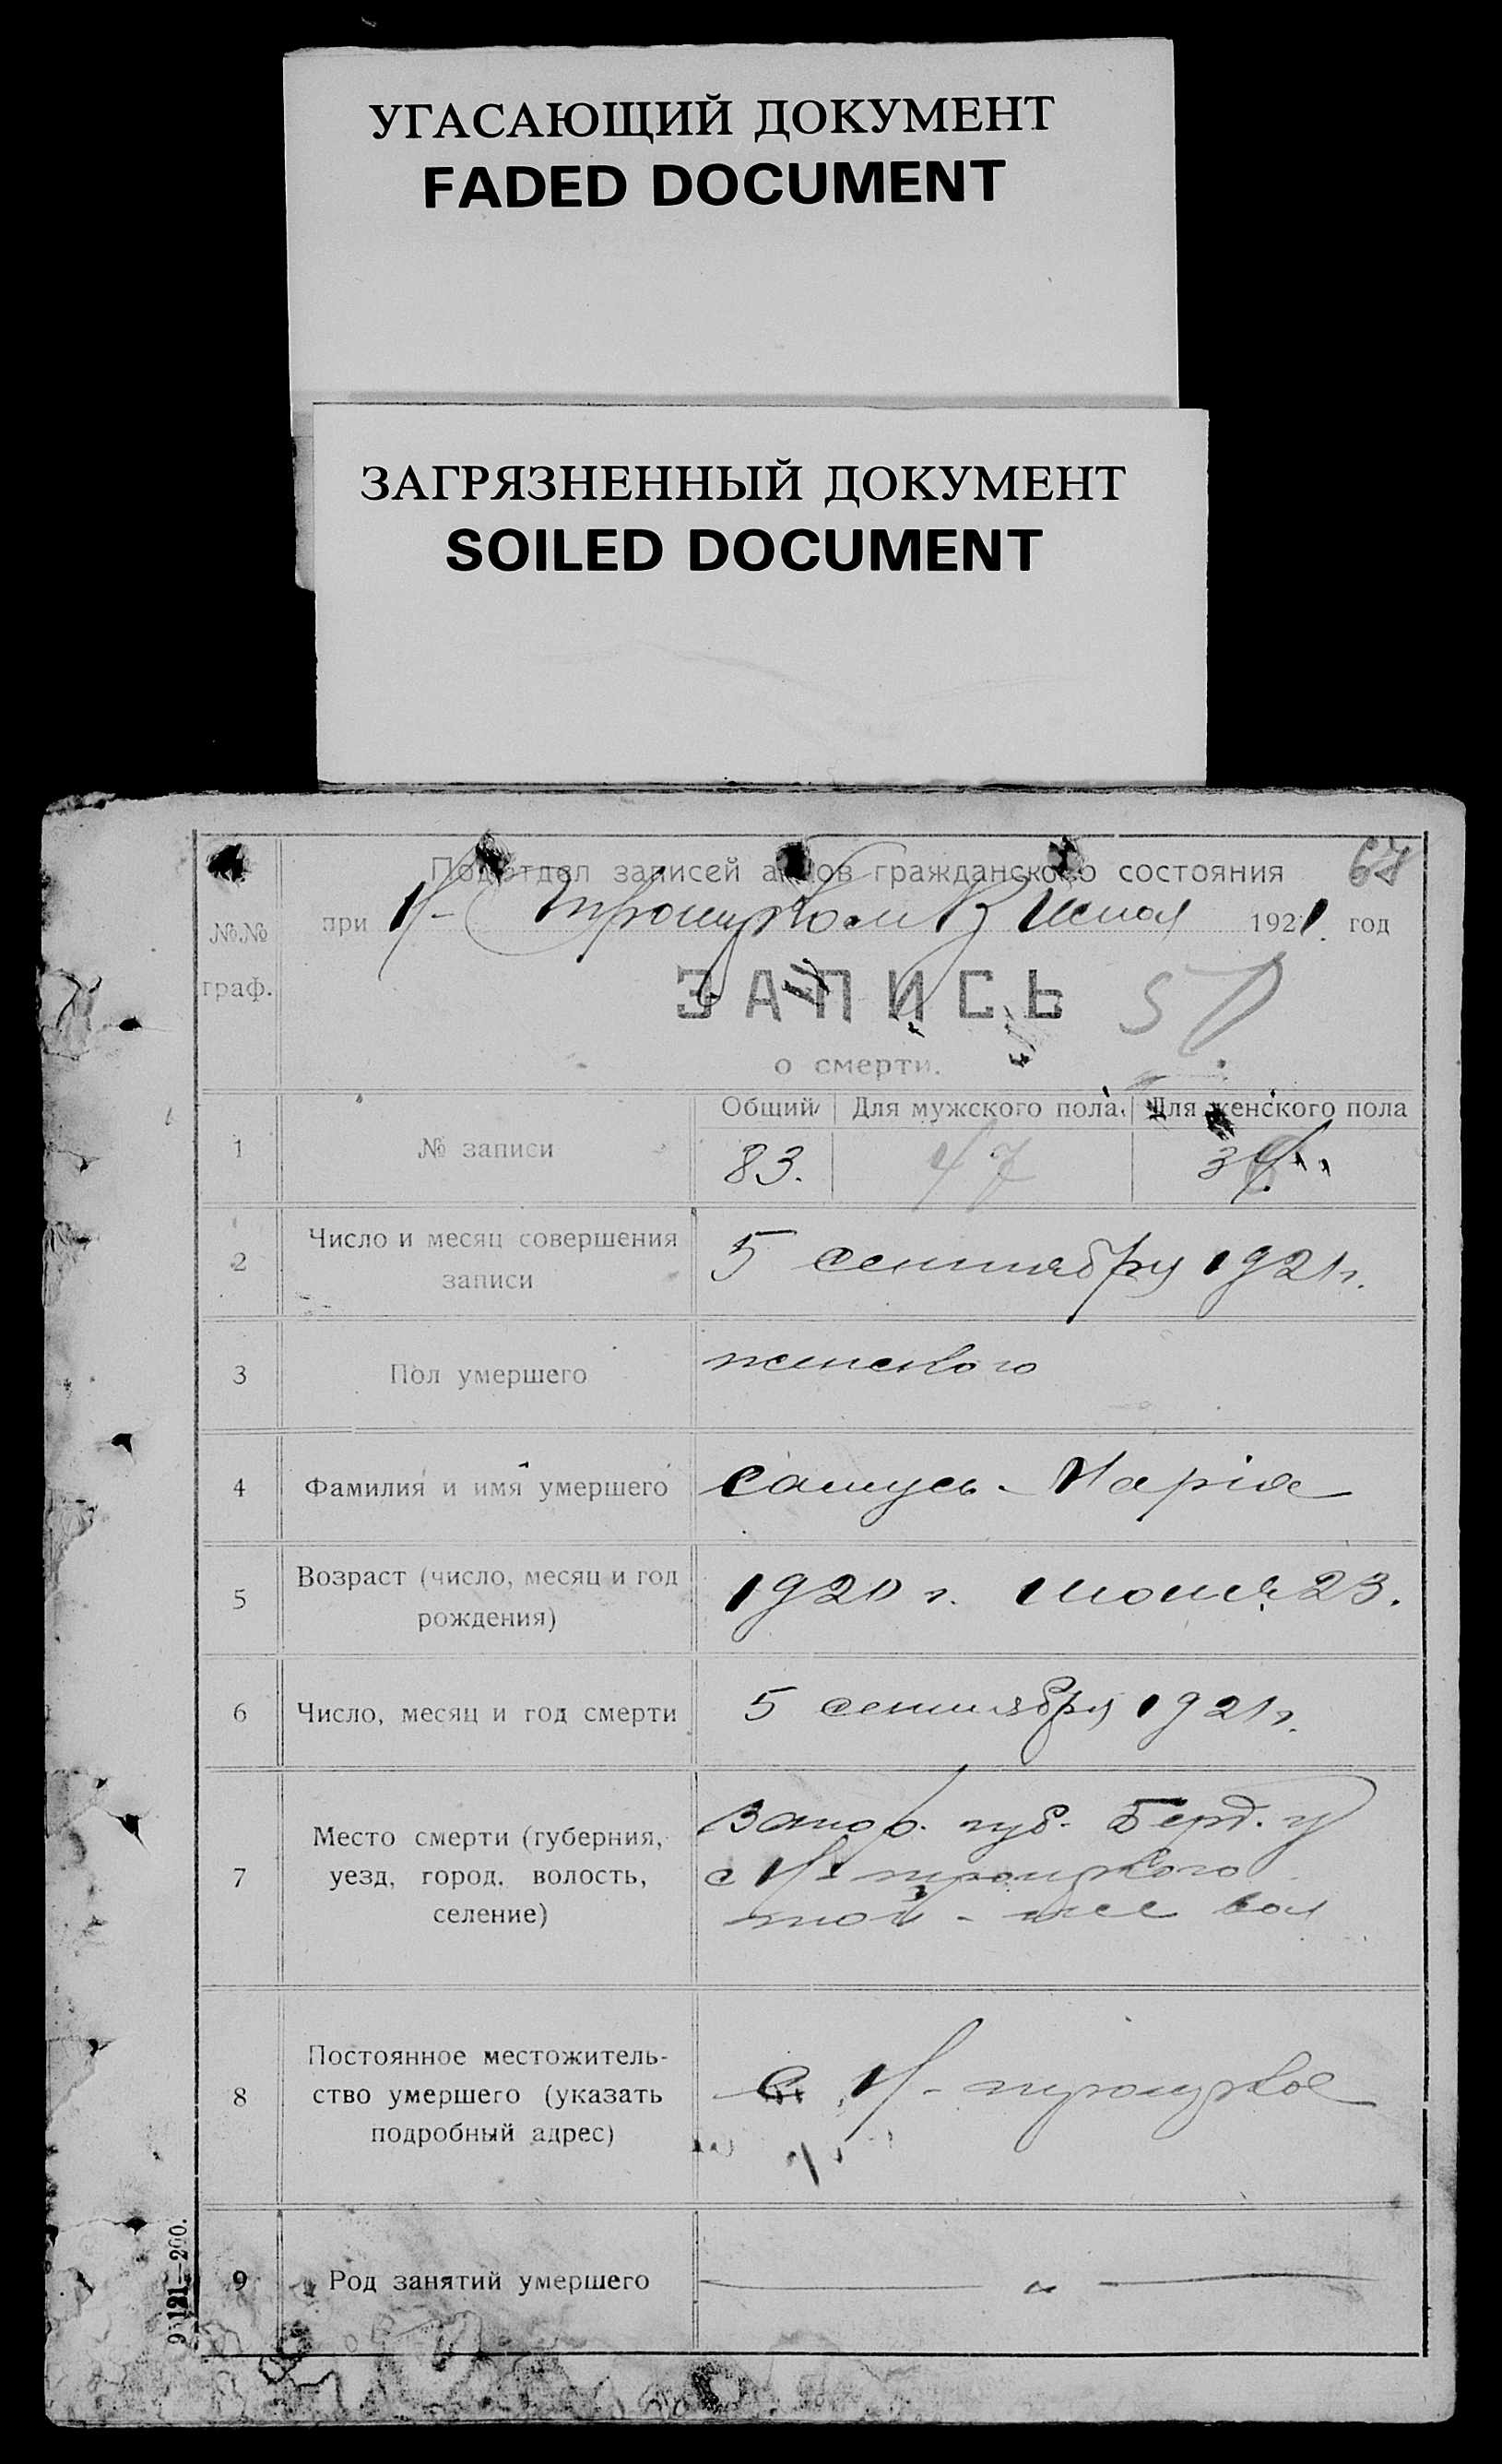 УГАСАЮЩИЙ ДОКУМЕНТ
FADED DOCUMENT
ЗАГРЯЗНЕННЫЙ ДОКУМЕНТ
SOILED DOCUMENT
Подотдел записей актов гражданского состояния
при Н- Троицком 1921 год
№№
граф.
ЗАПИСЬ
о смерти.
Общий Для мужского пола. Для женского пола
1 № записи 83. 47
2 Число и месяц совершения
записи
5 сентября 1921 г.
3 Пол умершего женского
4 Фамилия и имя умершего Самусь - Марія
5 Возраст (число, месяц и год
рождения)
1920 г. июня 23.
6 Число, месяц и год смерти 5 сентября 1921 г.
7 Место смерти (губерния,
уезд, город, волость,
селение)
Запор. губ. Берд. у
с Н- троицкого
той - же вол
8 Постоянное местожитель-
ство умершего (указать
подробный адрес)
с. Н- троицкое
9 Род занятий умершего — „ —